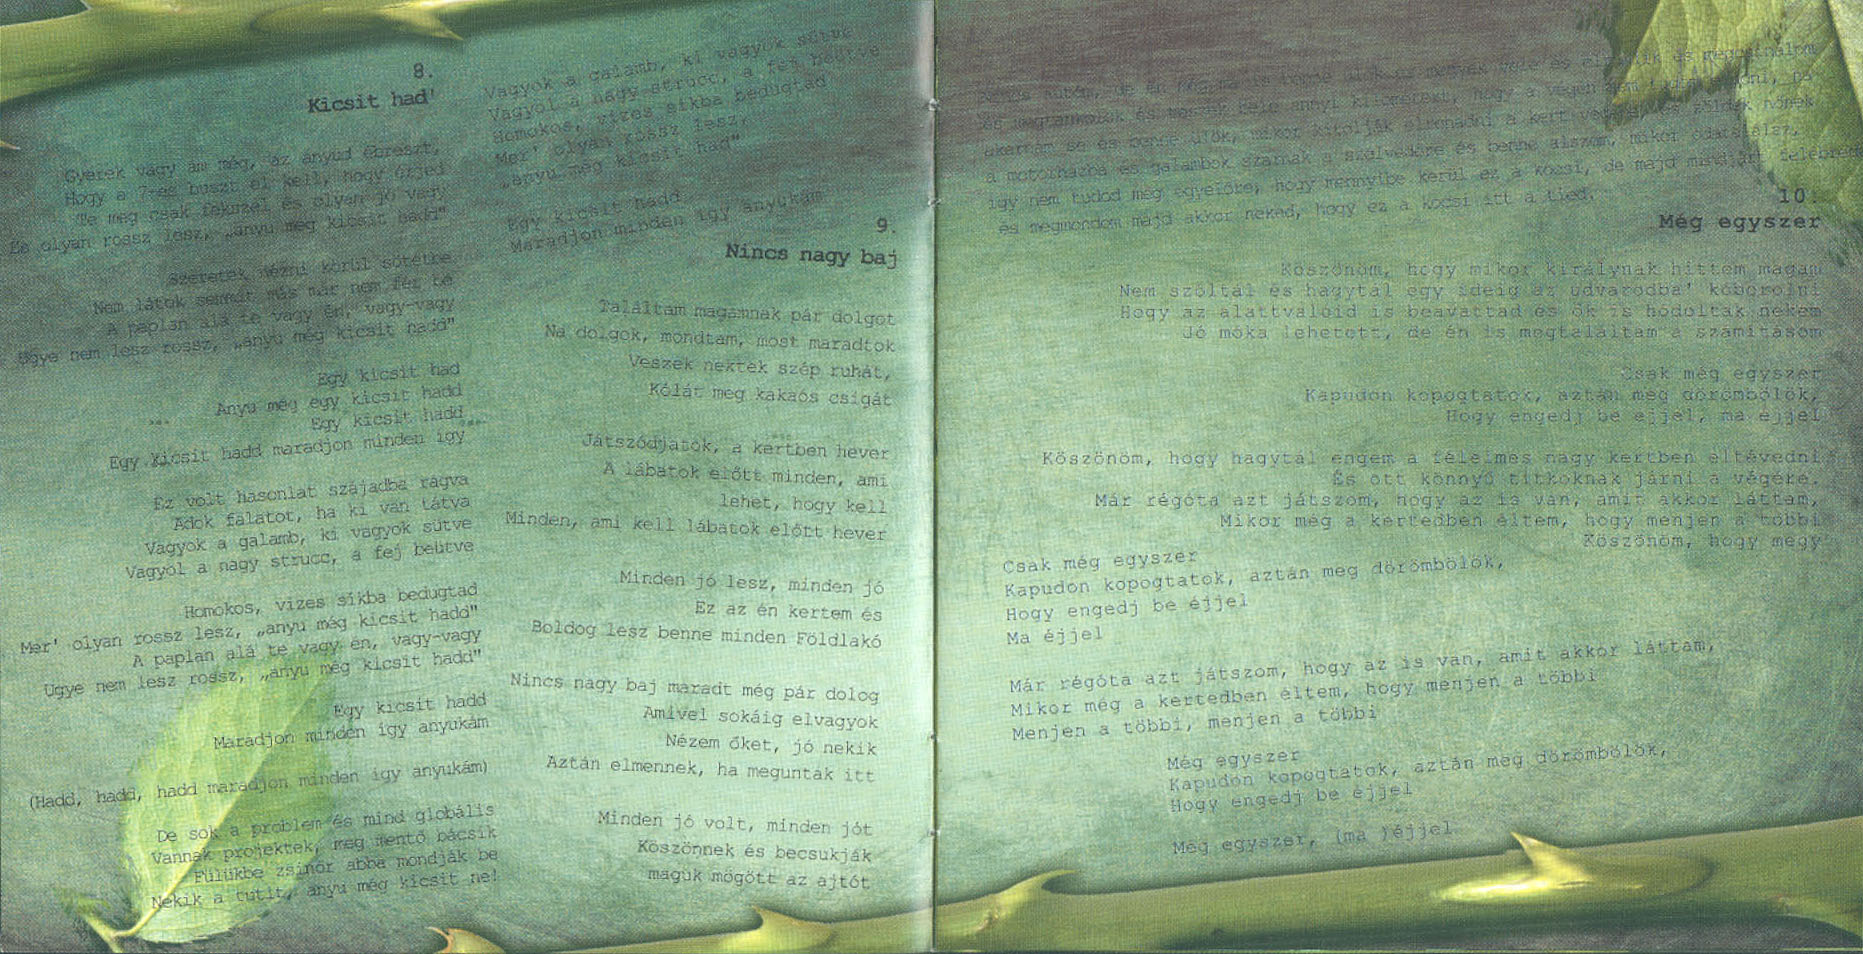 8.
Kicsit had'
Gyerek vagy ám még, az anyud ébreszt,
Hogy a 7-es buszt el kell, hogy érjed
Te meg csak fekszel és olyan jó vagy
De olyan rossz lesz, „anyu még kicsit hadd"
Szeretek nézni körül sötétbe
Nem látok semmit más már nem fér be
A paplan alá te vagy én, vagy-vagy
Ugye nem lesz rossz, „anyu még kicsit hadd"
Egy kicsit had
Anyu még egy kicsit hadd
Egy kicsit hadd
Egy kicsit hadd maradjon minden így
Ez volt hasonlat szájadba rágva
Adok falatot, ha ki van tátva
Vagyok a galamb, ki vagyok sütve
Vagyol a nagy strucc, a fej beütve
Homokos, vizes síkba bedugtad
Mer' olyan rossz lesz, „anyu még kicsit hadd"
A paplan alá te vagy én, vagy-vagy
Ugye nem lesz rossz, „anyu még kicsit hadd"
Egy kicsit hadd
Maradjon minden így anyukám
(Hadd, hadd, hadd maradjon minden így anyukám)
De sok a problem és mind globális
Vannak projektek, meg mentő bácsik
Fülükbe zsinór abba mondják be
Nekik a tutit, anyu még kicsit ne!
Vagyok a galamb, ki vagyok sütve
Vagyol a nagy strucc, a fej beütve
Homokos, vizes síkba bedugtad
Mer' olyan rossz lesz,
„anyu még kicsit had"
Egy kicsit hadd
Maradjon minden így anyukám
9.
Nincs nagy baj
Találtam magamnak pár dolgot
Na dolgok, mondtam, most maradtok
Veszek nektek szép ruhát,
Kólát meg kakaós csigát
Játszódjatok, a kertben hever
A lábatok előtt minden, ami
lehet, hogy kell
Minden, ami kell lábatok előtt hever
Minden jó lesz, minden jó
Ez az én kertem és
Boldog lesz benne minden Földlakó
Nincs nagy baj maradt még pár dolog
Amivel sokáig elvagyok
Nézem őket, jó nekik
Aztán elmennek, ha meguntak itt
Minden jó volt, minden jót
Köszönnek és becsukják
maguk mögött az ajtót
és megtankolok és megyek bele annyi kilométert, hogy a végén nem
akarnám se és benne ülök, mikor kitolják elrohadni a kert végébe és földek nőnek
a motorházba és galambok szarnak a szélvédőre és benne alszom, mikor odatalálsz,
így nem tudod meg egyelőre, hogy mennyibe kerül ez a kocsi, de majd mindjárt felébredek
és megmondom majd akkor neked, hogy ez a kocsi itt a tied.
10.
Még egyszer
Köszönöm, hogy mikor királynak hittem magam
Nem szóltál és hagytál egy ideig az udvarodba' kóborolni
Hogy az alattvalóid is beavattad és ők is hódoltak nekem
Jó móka lehetett, de én is megtaláltam a számításom
Csak még egyszer
Kapudon kopogtatok, aztán meg dörömbölök,
Hogy engedj be éjjel, ma éjjel
Köszönöm, hogy hagytál engem a félelmes nagy kertben eltévedni
És ott könnyű titkoknak járni a végére.
Már régóta azt játszom, hogy az is van, amit akkor láttam,
Mikor még a kertedben éltem, hogy menjen a többi
Köszönöm, hogy megy
Csak még egyszer
Kapudon kopogtatok, aztán meg dörömbölök,
Hogy engedj be éjjel
Ma éjjel
Már régóta azt játszom, hogy az is van, amit akkor láttam,
Mikor még a kertedben éltem, hogy menjen a többi
Menjen a többi, menjen a többi
Még egyszer
Kapudon kopogtatok, aztán meg dörömbölök,
Hogy engedj be éjjel
Még egyszer, (ma )éjjel